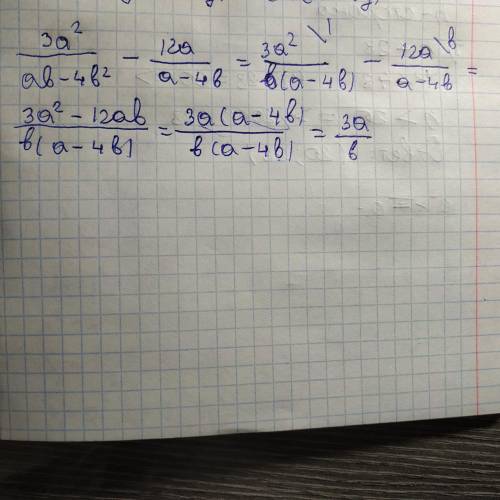 3a²/(ab-4b²) - 12a/(a-4b) = 3a²\1/(b(a-4b)) - 12a\b/(a-4b) =
(3a²-12ab)/(b(a-4b)) = 3a(a-4b)/(b(a-4b)) = 3a/b